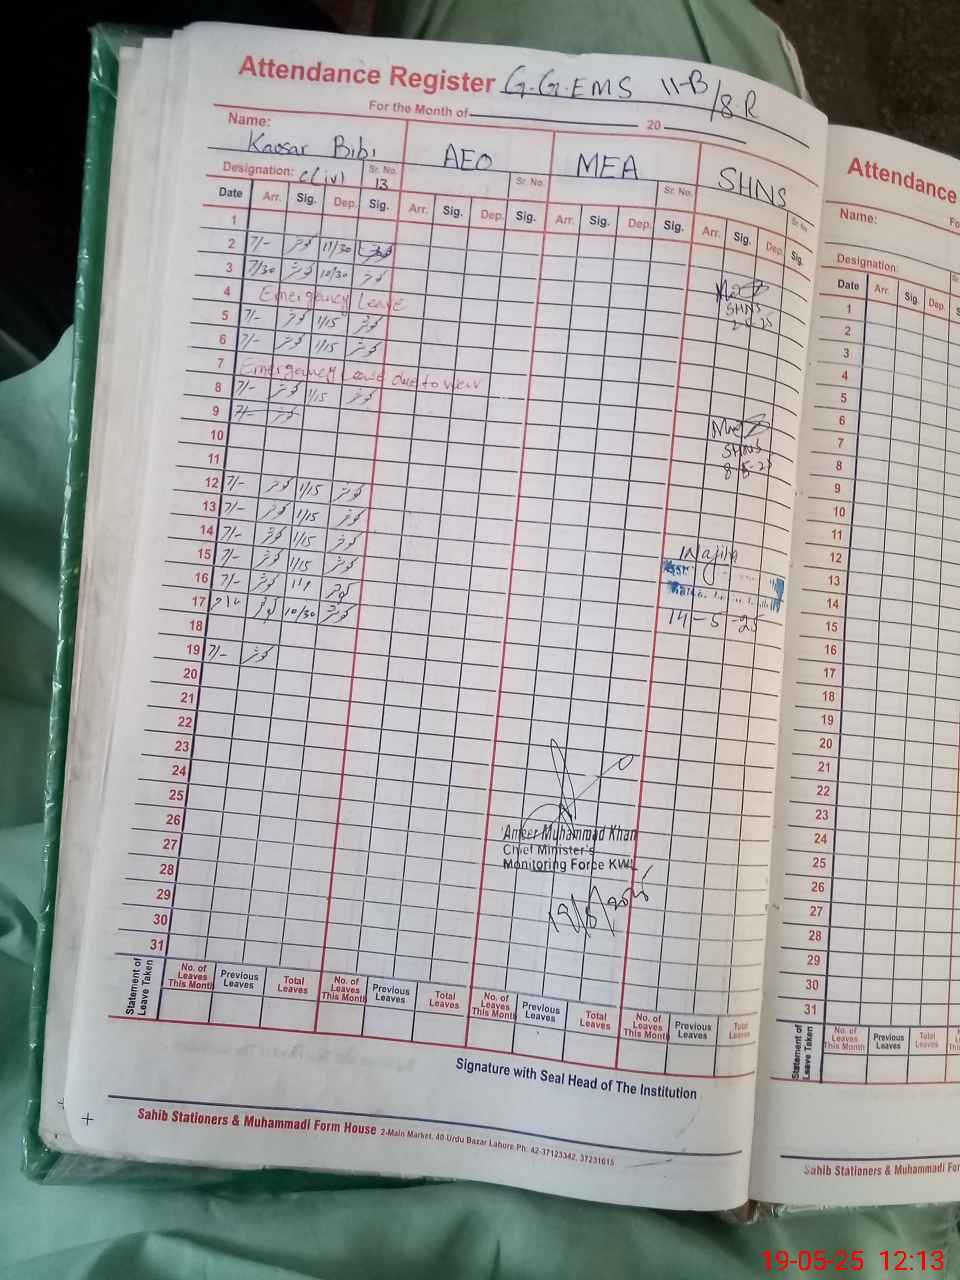 Attendance Register G.G.E.M.S 11-B/8.R
For the Month of 20
Name: Kaosar Bibi AEO MEA SHNS
Designation: C(iv) Sr. No. 13 Sr. No. Sr. No. Sr No
Date Arr. Sig. Dep. Sig. Arr. Sig. Dep. Sig. Arr. Sig. Dep. Sig. Arr. Sig. Dep. Sig.
1
2 7/- کوثر 11/30 کوثر
3 7/30 کوثر 10/30 کوثر
4 Emergency Leave
SHNS
2-5-25
5 7/- کوثر 1/15 کوثر
6 7/- کوثر 1/15 کوثر
7 Emergency Leave due to war
8 7/- کوثر 1/15 کوثر
9 7/- کوثر
SHNS
8-5-25
10
11
12 7/- کوثر 1/15 کوثر
13 7/- کوثر 1/15 کوثر
14 7/- کوثر 1/15 کوثر
15 7/- کوثر 1/15 کوثر
Wajiha
16 7/- کوثر کوثر
17 کوثر 10/30 کوثر
14-5-25
18
19 7/- کوثر
20
21
22
23
24
25
26
Ameer Muhammad Khan
27
Chief Minister's
28
Monitoring Force KWL
19/5/2025
29
30
31
Statement of Leave Taken
No. of Leaves This Month Previous Leaves Total Leaves No. of Leaves This Month Previous Leaves Total Leaves No. of Leaves This Month Previous Leaves Total Leaves No. of Leaves This Month Previous Leaves Total Leaves
Signature with Seal Head of The Institution
Sahib Stationers & Muhammadi Form House 2-Main Market, 40-Urdu Bazar Lahore Ph. 42-37123342, 37231615
Attendance
Fo
Name:
Designation:
Date Arr. Sig. Dep.
1
2
3
4
5
6
7
8
9
10
11
12
13
14
15
16
17
18
19
20
21
22
23
24
25
26
27
28
29
30
31
Statement of Leaves Taken
No. of Leaves This Month Previous Leaves Total Leaves
Sahib Stationers & Muhammadi For
19-05-25 12:13